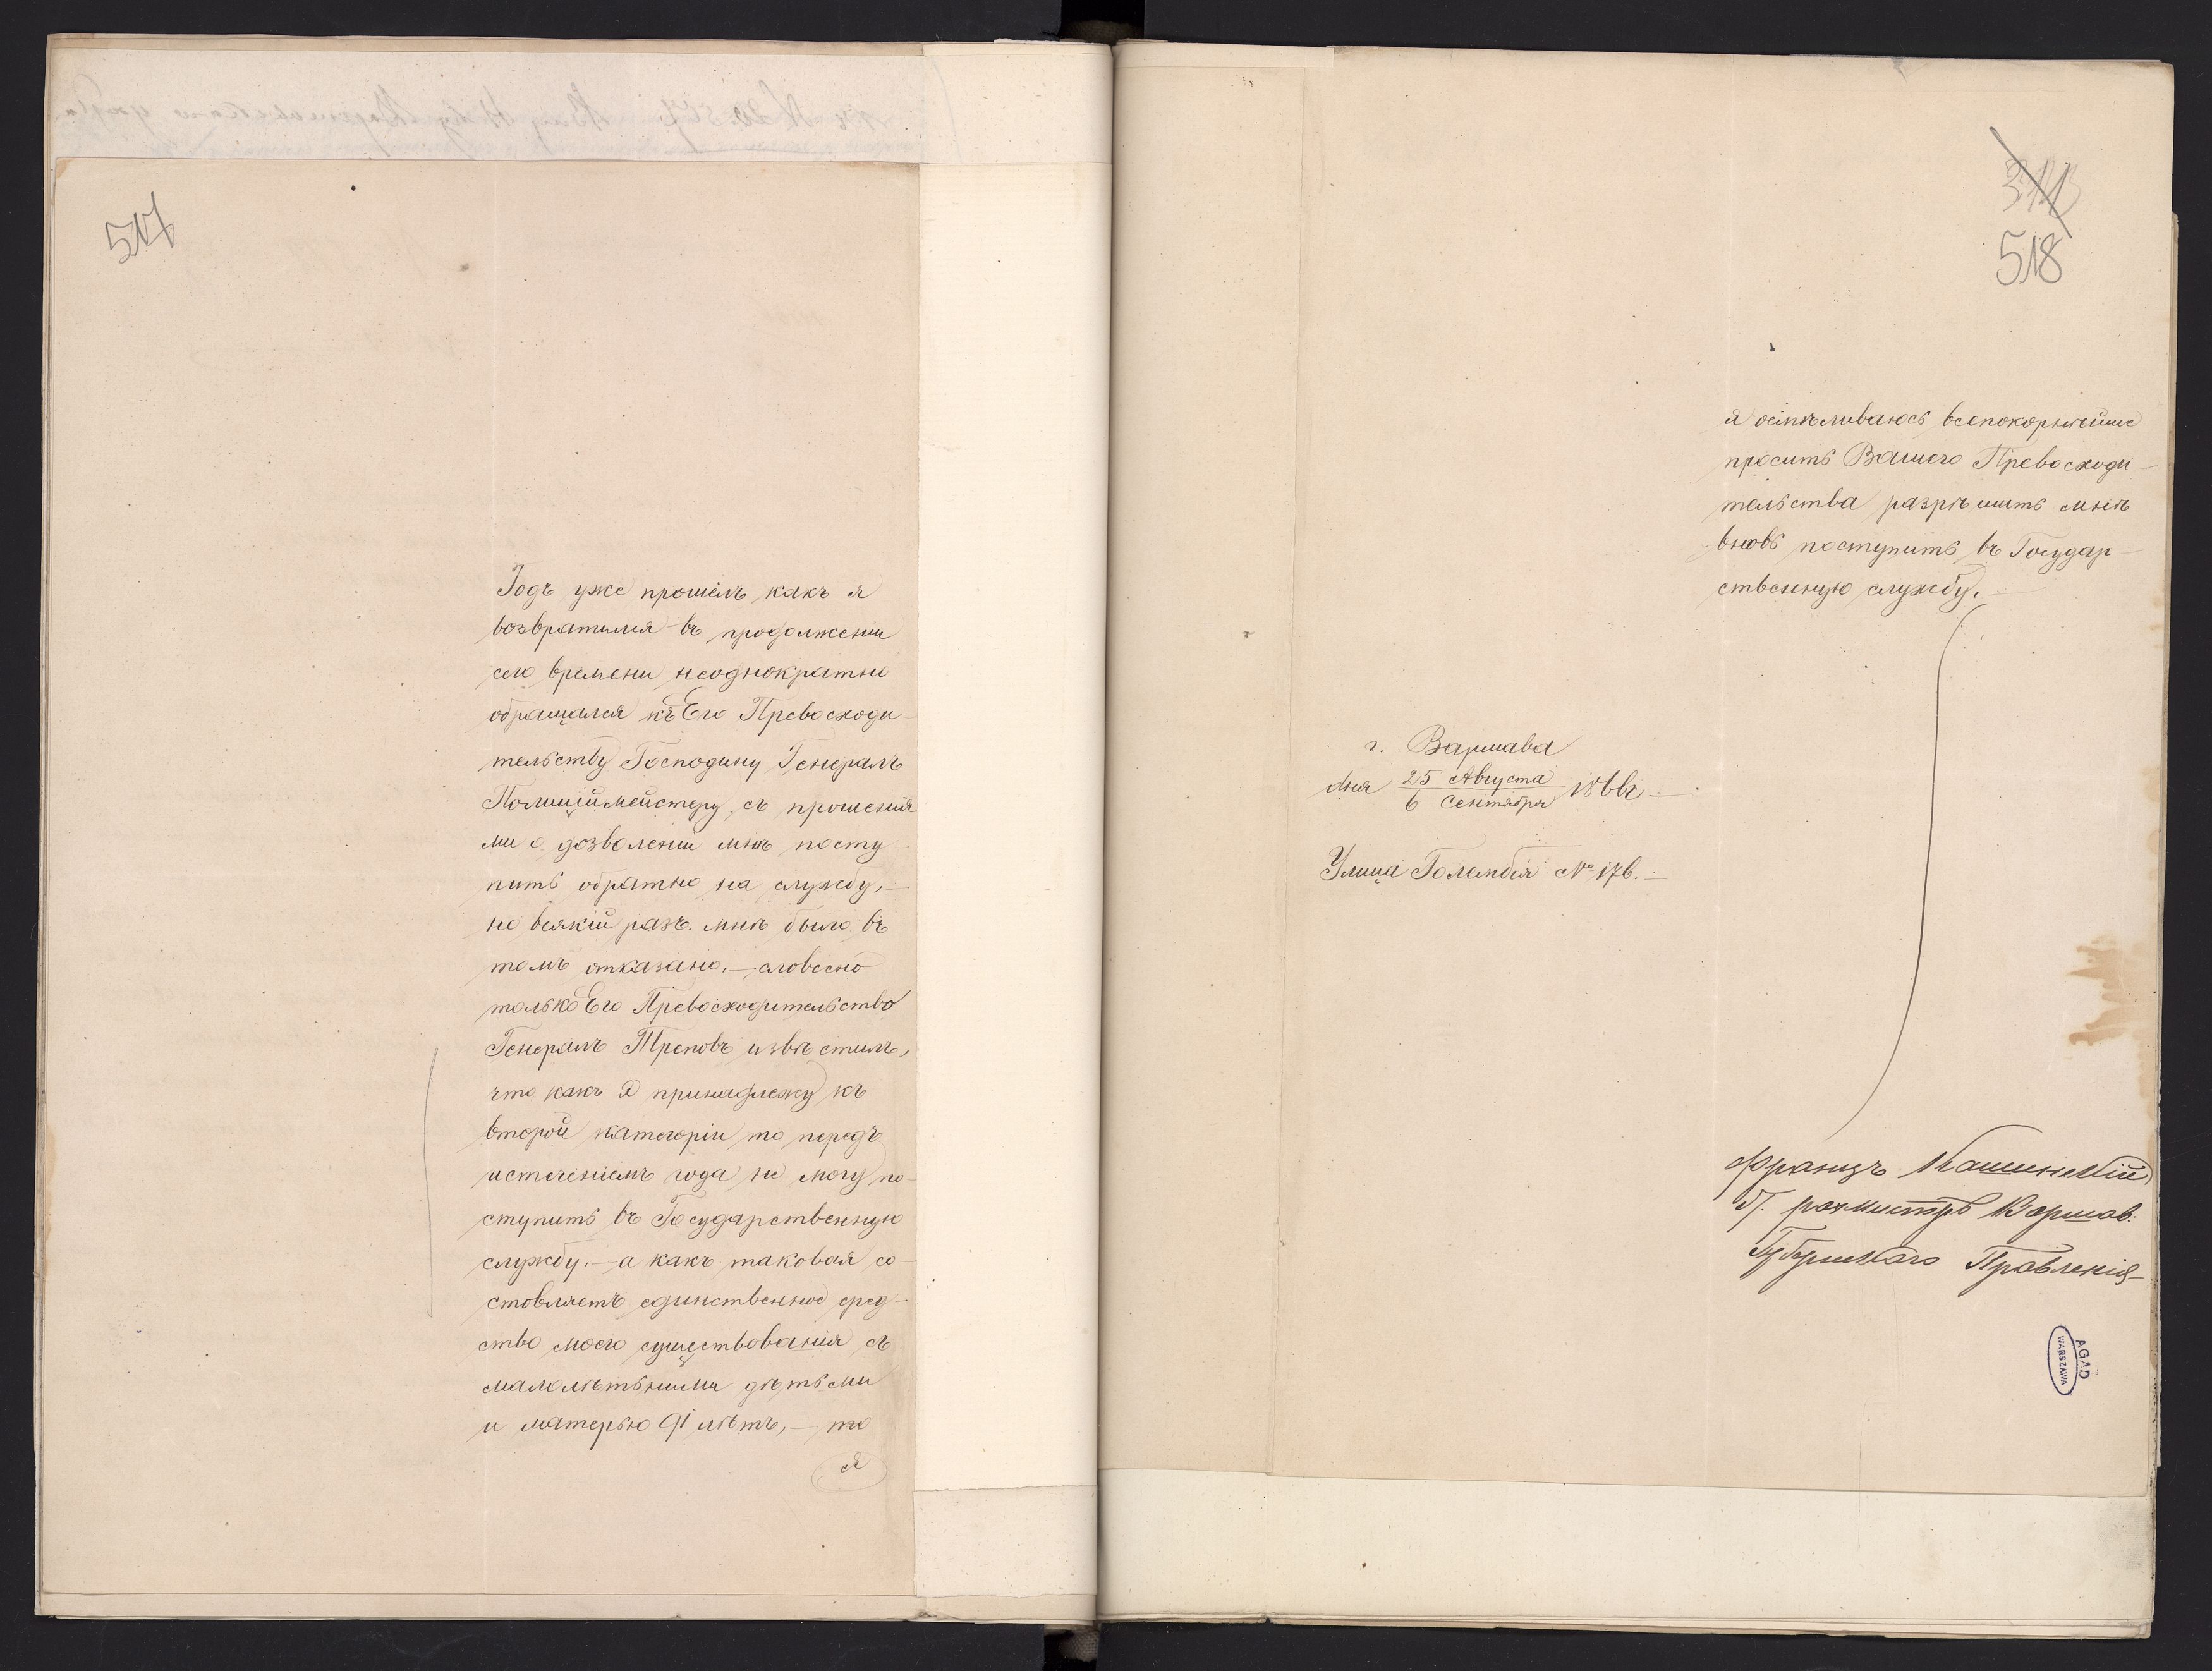 517
Годъ уже прошелъ какъ я
возвратился въ продолженіи
сего времени неоднократно
обращался къ Его Превосходи-
тельству Господину Генералъ
Полиціймейстеру, съ прошенія
ми о дозволеніи мнѣ посту-
пить обратно на службу,—
но всякій разъ мнѣ было въ
томъ отказано.— словесно
только Его Превосходительство
Генералъ Треповъ извѣстилъ,
что какъ я принадлежу къ
второй категоріи то передъ
истеченіемъ года не могу по-
ступить въ Государственную
службу.— а какъ таковая со-
ставляетъ единственное сред-
ство моего существованія съ
малолѣтними дѣтьми
и матерью 91 лѣтъ,— то
я
518
я осмѣливаюсь всепокорнѣйше
просить Вашего Превосходи-
тельства разрѣшить мнѣ
вновь поступить въ Государ-
ственную службу.—
г. Варшава
дня 25 Августа
6 Сентября 1866г.—
Улица Голембія № 176.—
Францъ
Варшав:
Губернскаго Правленія
AGAD
WARSZAWA